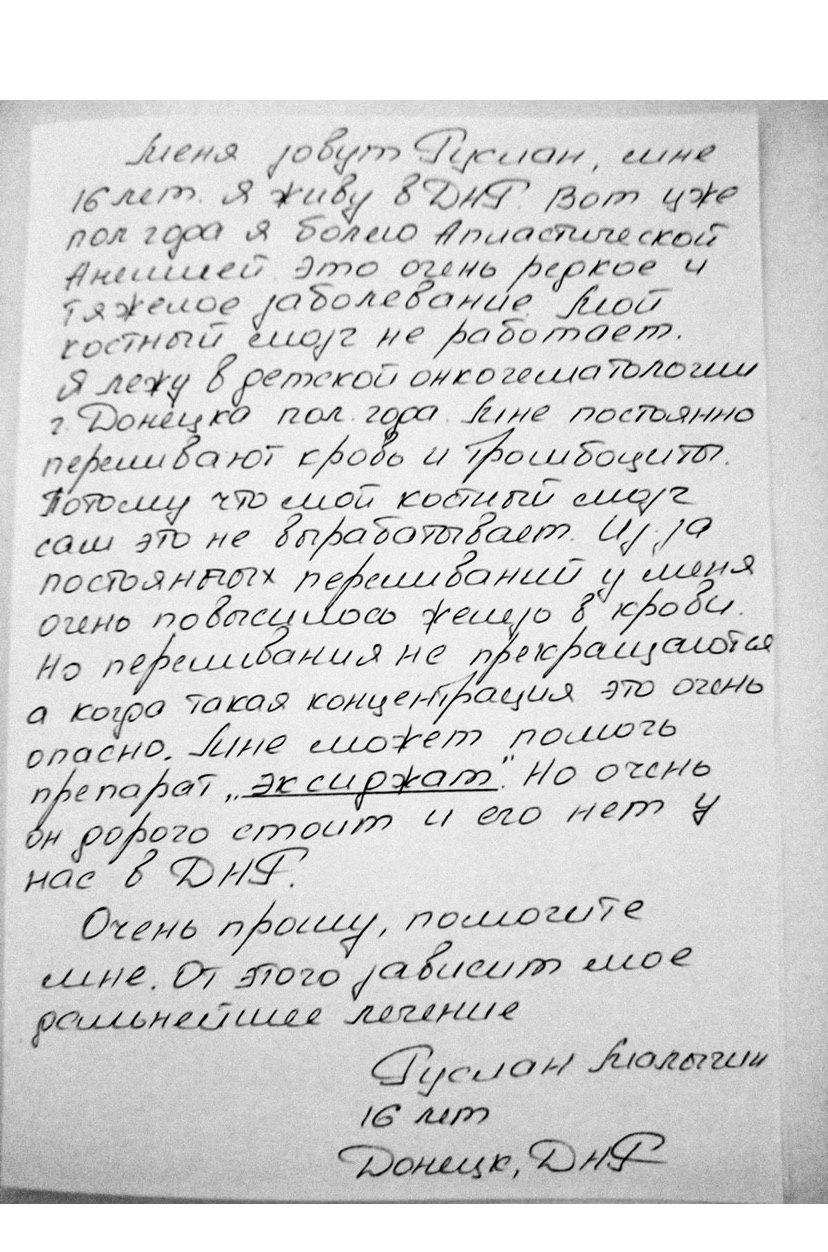 Меня зовут Руслан, мне
16 лет. Я живу в ДНР. Вот уже
пол года я болею Апластической
Анемией. Это очень редкое и
тяжелое заболевание. Мой
костный мозг не работает.
Я лежу в детской онкогематологии
г. Донецка пол. года. Мне постоянно
переливают кровь и тромбоциты.
Потому что мой костный мозг
сам это не вырабатывает. Из за
постоянных переливаний у меня
очень повысилось железо в крови.
Но переливания не прекращаются
а когда такая концентрация это очень
опасно. Мне может помочь
препарат „эксиджат". Но очень
он дорого стоит и его нет у
нас в ДНР.
Очень прошу, помогите
мне. От этого зависит мое
дальнейшее лечение
Руслан Малыгин
16 лет
Донецк, ДНР